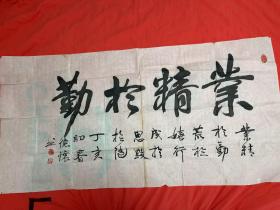 業精於勤
業精
於勤
荒於
嬉行
成於
思毀
於隨
丁亥
初春